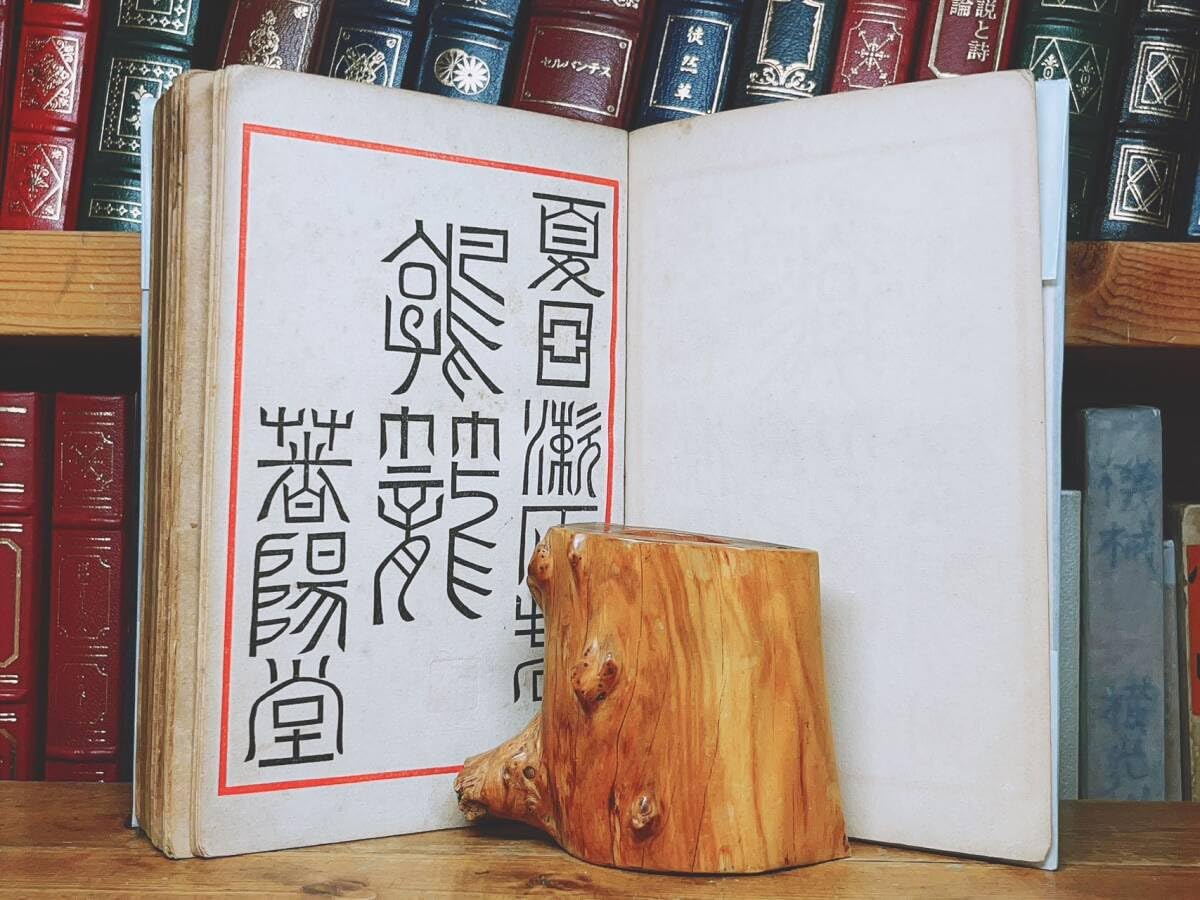 セルバンテス
徒然草
説と詩
論
夏目漱石
鶉籠
春陽堂